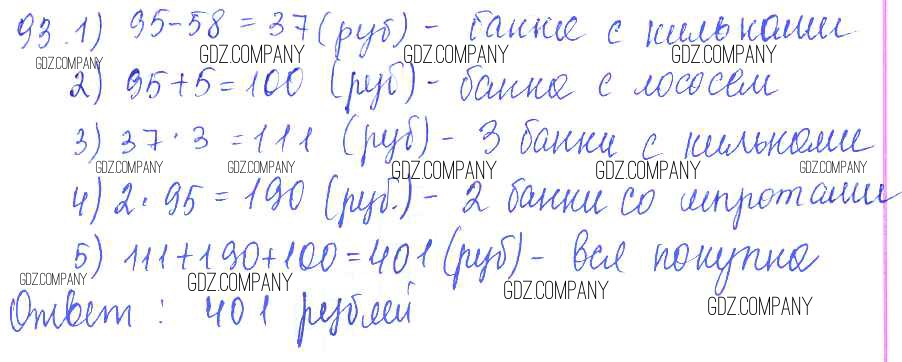 93. 1) 95-58=37 (руб) - банка с кильками
GDZ.COMPANY GDZ.COMPANY GDZ.COMPANY GDZ.COMPANY
2) 95+5=100 (руб) - банка с лососем
3) 37·3=111 (руб) - 3 банки с кильками
GDZ.COMPANY GDZ.COMPANY GDZ.COMPANY GDZ.COMPANY GDZ.COMPANY
4) 2·95=190 (руб.) - 2 банки со шпротами
5) 111+190+100=401 (руб) - вся покупка
GDZ.COMPANY GDZ.COMPANY GDZ.COMPANY GDZ.COMPANY
Ответ: 401 рублей